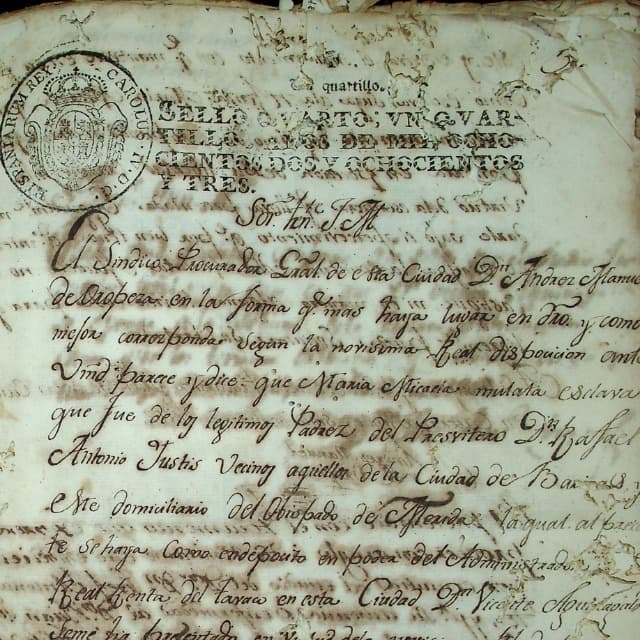 CAROLUS IV D G HISPANIAR REX
quartillo.
SELLO QVARTO, VN QVAR-
TILLO, AÑOS DE MIL OCHO-
CIENTOS DOS Y OCHOCIENTOS
Y TRES.
Sor.
El Sindico Procurador Gral de esta Ciudad Dn Andrez Manu
de Oropeza en la forma qe mas haya lugar en dro y como
mejor corresponda segun la novisima Real disposicion ante
Vmd parece y dice que Maria Micaela mulata esclava
que fue de los legitimos Padrez del Presvitero Dn Raffael
Antonio Justis Vecinos aquellos de la Ciudad de Barinas y
este domiciliario del Obispado de Merida la qual al presen
te se haya como endeposito en poder del Administrador
Real Renta del tavaco en esta Ciudad Dn Vicente
seme ha